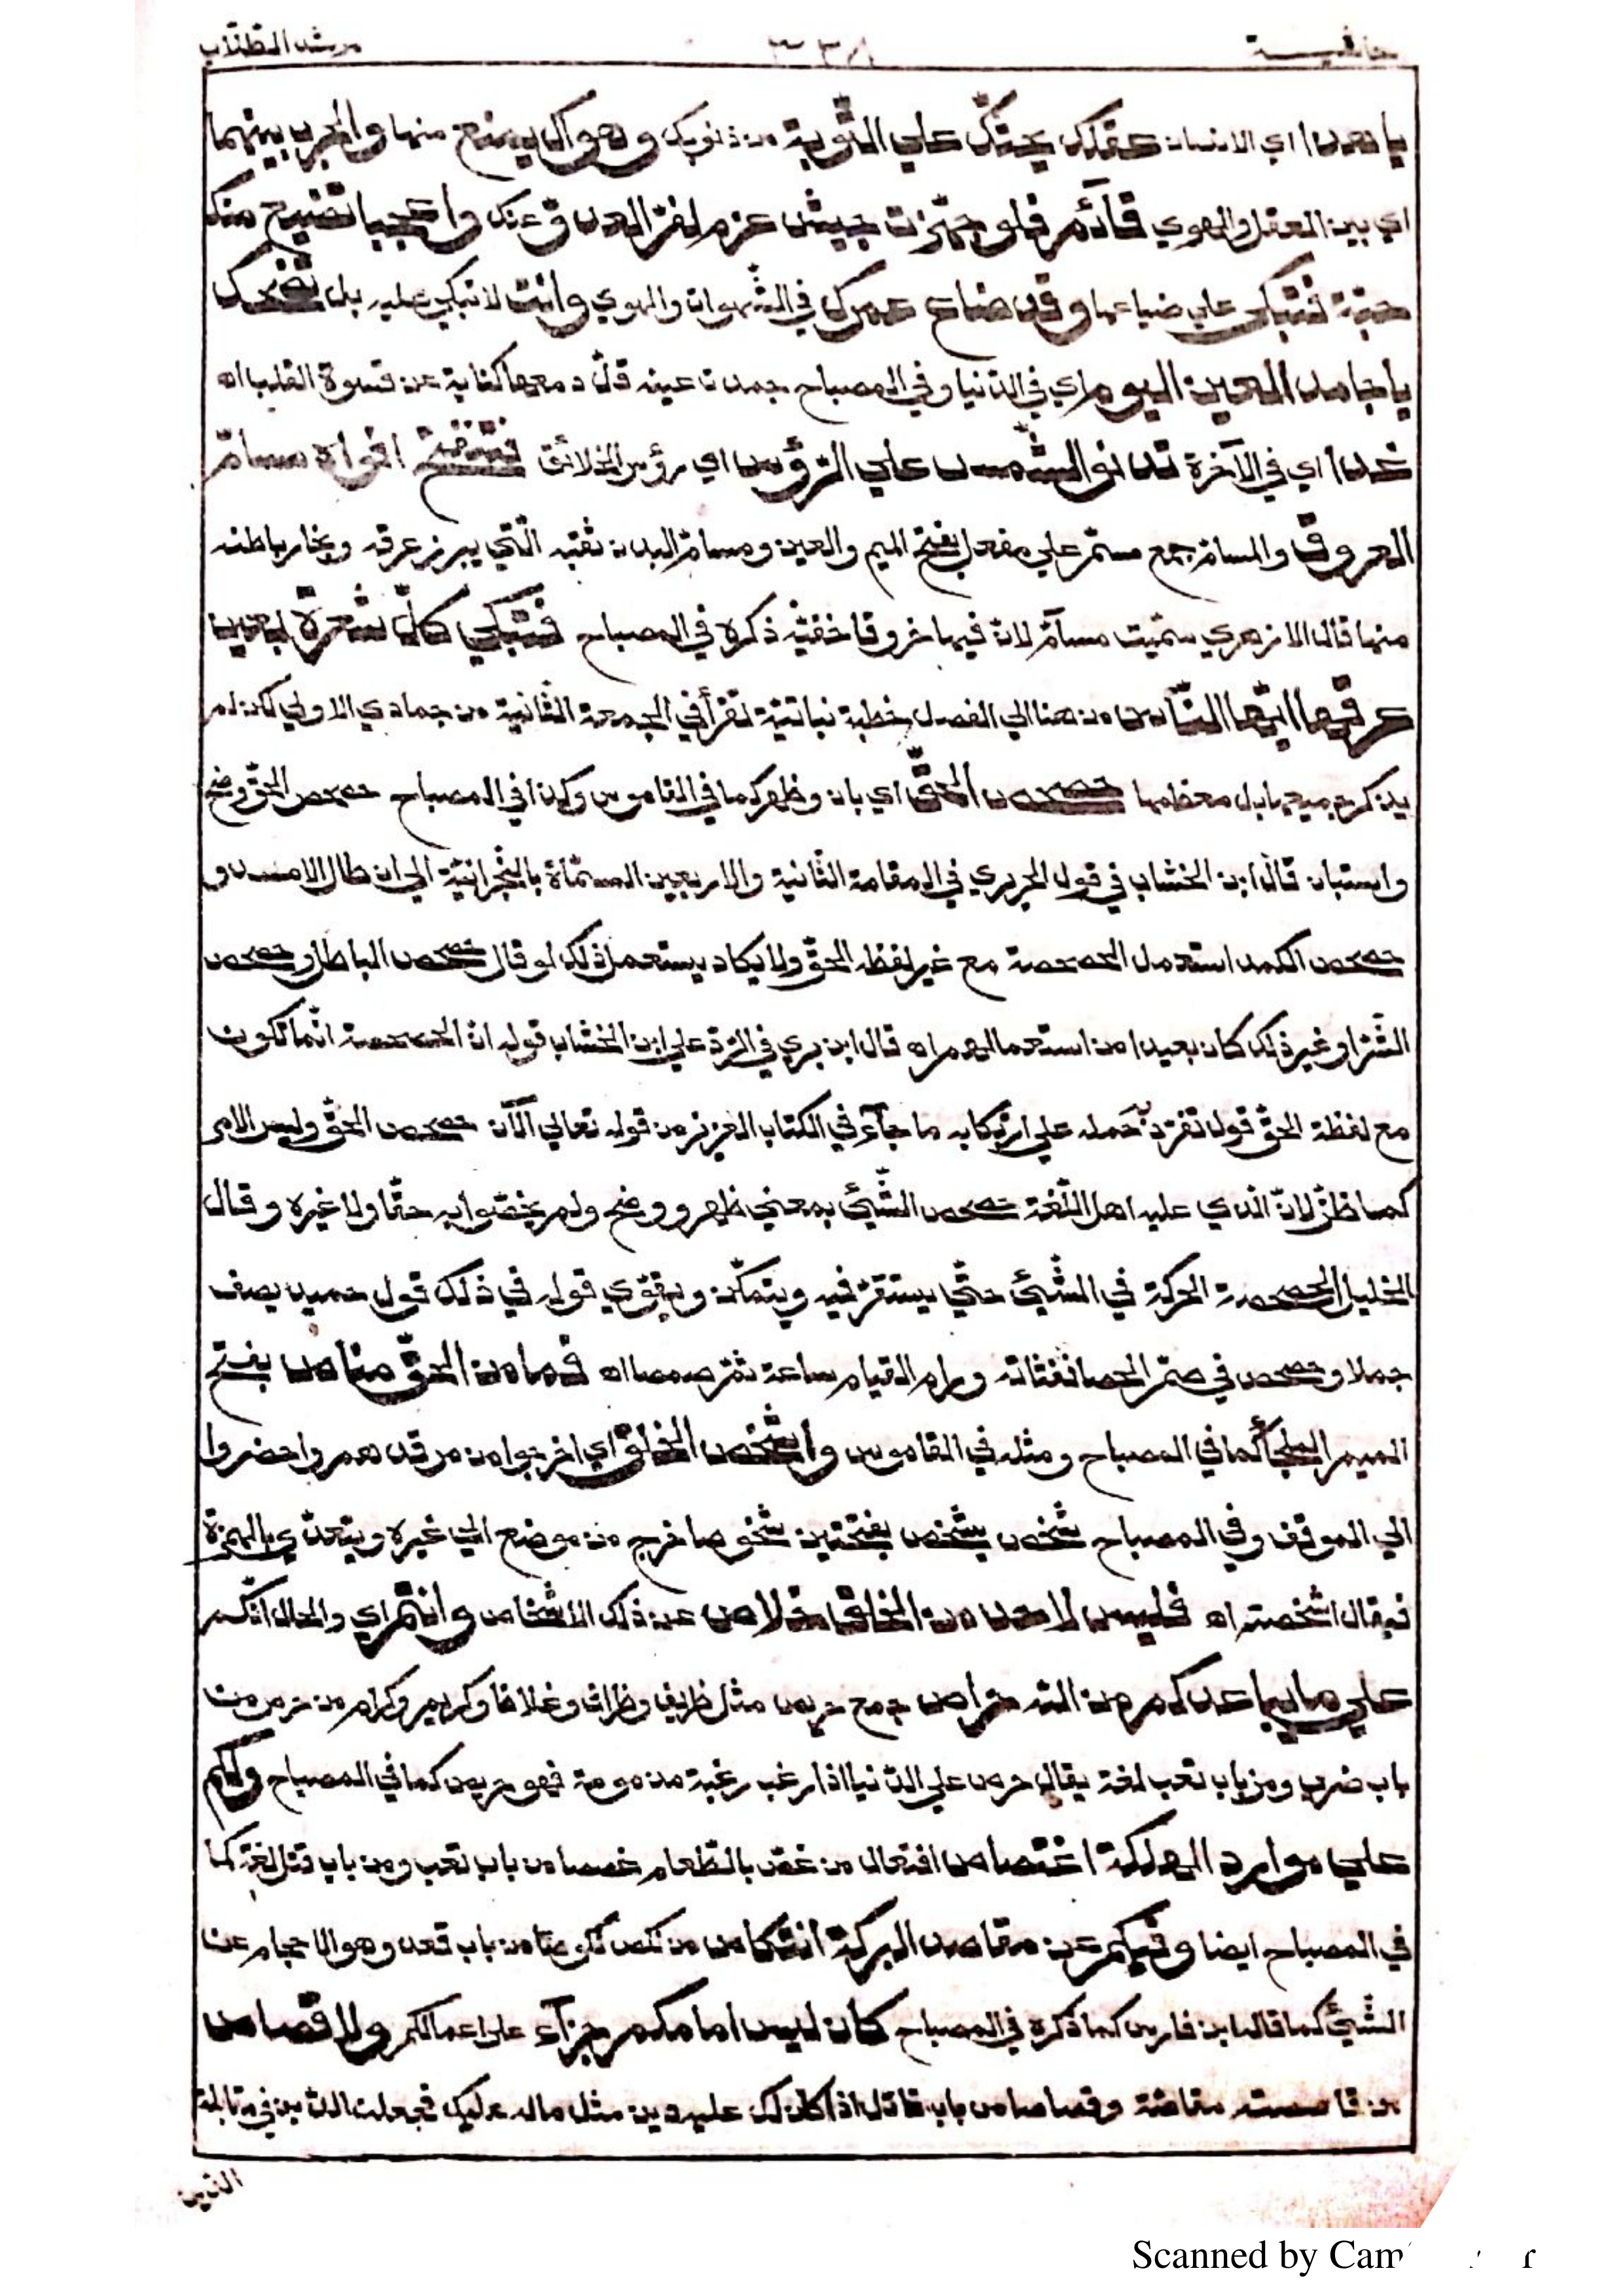 حاشية ٣٣٨ مرشد الطلاب
يا هذا اي الانسان عقلك يحثك علي التّوبة من ذنوبك وهواك يمنع منها والحرب بينهما
اي بين العقل والهوي قآئم فلو جهّزت جيش عزم لفرّ العدوّ عنك واعجبا تضيع منك
حبّة فتبكي علي ضياعها وقد ضاع عمرك في الشّهوات والهوي وانت لا تبكي عليه بل تضحك
يا جامد العين اليوم اي في الدّنيا وفي المصباح جمدت عينه قلّ دمعها كناية عن قسوة القلب اه
غدا اي في الآخرة تدنو الشّمس علي الرّؤس اي رؤس الخلائق فتنفتح افواه مسامّ
العروق والمسامّ جمع مسمّ علي مفعل بفتح الميم والعين ومسامّ البدن ثقبه الّتي يبرز عرقه وبخار باطنه
منها قال الازهري سمّيت مسامّ لانّ فيها خروقا خفيّة ذكره في المصباح فتبكي كلّ شعرة بعين
عرقها ايّها النّاس من هنا الي الفصل خطبة نباتيّة تقرأ في الجمعة الثّانية من جمادي الاولي لكن لم
يذكر جميعها بل معظمها حصحص الحقّ اي بان وظهر كما في القاموس وكذا في المصباح حصحص الحقّ وضح
واستبان قال ابن الخشاب في قول الحريري في المقامة الثّانية والاربعين المسمّاة بالنّجرانيّة الي ان طال الامد و
حصحص الكمد استعمل الحصحصة مع غير لفظ الحقّ ولا يكاد يستعمل ذلك لو قال حصحص الباطل وحصحص
الشّرّ او غير ذلك كان بعيدا من استعمالهم اه قال ابن بري في الرّد علي ابن الخشاب قوله انّ الحصحصة انّما تكون
مع لفظة الحقّ قول تفرّد به حمله علي ارتكابه ما جآء في الكتاب العزيز من قوله تعالي الآن حصحص الحقّ وليس الامر
كما ظنّ لانّ الّذي عليه اهل اللّغة حصحص الشّيئ بمعني ظهر ووضح ولم يخصّوا به حقّا ولا غيره وقال
الخليل الحصحصة الحركة في الشّيئ حتّي يستقرّ فيه ويتمكّن ويقوّي قوله في ذلك قول حميد يصف
جملا وحصحص في صمّ الحصا ثفناته ورام القيام ساعة ثمّ صمصا اه فما من الحقّ مناص بفتح
الميم الملجأ كما في المصباح ومثله في القاموس واشخص الخلق اي اخرجوا من مرقدهم واحضروا
الي الموقف وفي المصباح شخص يشخص بفتحتين شخوصا خرج من موضع الي غيره ويتعدّي بالهمزة
فيقال اشخصته اه فليس لاحد من الخلق خلاص عن ذلك الاشخاص وانتم اي والحال انّكم
علي ما يباعدكم من اللّه حراص جمع حريص مثل ظريف وظراف وغلاظا وكريم وكرام من حرص من
باب ضرب ومن باب تعب لغة يقال حرص علي الدّنيا اذا رغب رغبة مذمومة فهو حريص كما في المصباح ولكم
علي موارد الهلكة اغتصاص افتعال من غصّ بالطّعام غصصا من باب تعب ومن باب قتل لغة كما
في المصباح ايضا وفيكم عن مقاصد البركة انتكاص من نكص نكوصا من باب قعد وهو الاحجام عن
الشّيئ كما قال ابن فارس كما ذكره في المصباح كان ليس امامكم جزآء علي اعمالكم ولا قصاص
من قاصصته مقاصّة وقصاصا من باب قاتل اذا كان لك عليه دين مثل ماله عليك فجعلت الدّين في مقابلة
الدّين
Scanned by Cam